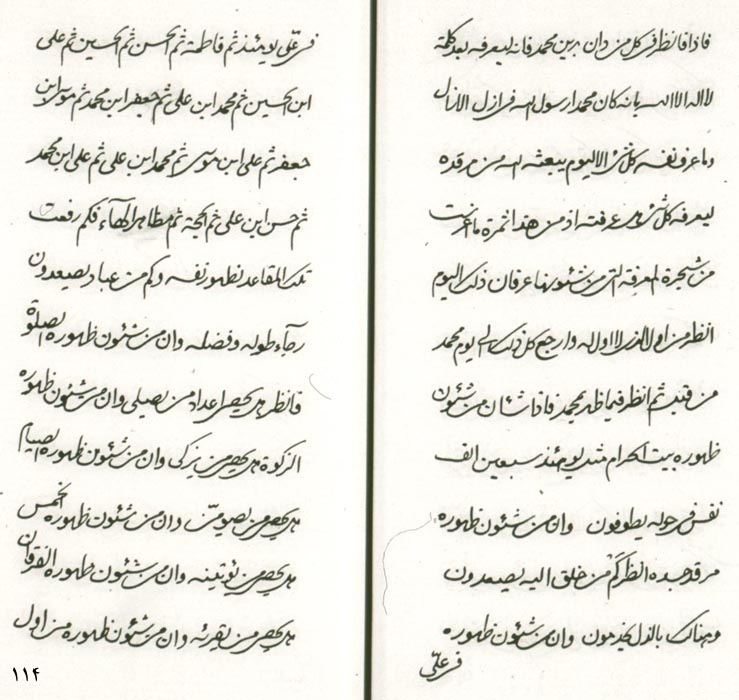 فاذا فانظر فی کل من دان بدین محمد فانه لیعرفه بعد کلمة
لا اله الا الله بانه کان محمدا رسول الله فی ازل الازل
و ما عرف نفسه کل شیء الا لیوم یبعثه الله من مرقده
لیعرفه کل شیء عرفته اذ من هذا ثمرة ما غرست
من شجرة المعرفة التی من شئونها عرفان ذلک الیوم
انظر من اول الذی لا اول له وارجع کل ذلک الی یوم محمد
من قبل ثم انظر فیما ظهر بمحمد فاذا شئان من شئون
ظهوره بیت الحرام مثل یومئذ سبعین الف
نفس فی حوله یطوفون وان من شئون ظهوره
مرقد جده انظر کم من خلق الیه یصعدون
وهنالک بالذل یخدمون وان من شئون ظهوره
فی علی
فی علی یومئذ ثم فاطمة ثم الحسن ثم الحسین ثم علی
ابن الحسین ثم محمد ابن علی ثم جعفر ابن محمد ثم موسی ابن
جعفر ثم علی ابن موسی ثم محمد ابن علی ثم علی ابن محمد
ثم حسن ابن علی ثم الحجة ثم مظاهر الهاء فکم رفعت
تلک المقاعد لظهور نفسه وکم من عباد یصعدون
رجاء طوله و فضله وان من شئون ظهوره الصلوة
فانظر هل یحصی اعداد من یصلی وان من شئون ظهوره
الزکوة هل یحصی من یزکی وان من شئون ظهوره الصیام
هل یحصی من یصومن وان من شئون ظهوره الخمس
هل یحصی من یؤتینه وان من شئون ظهوره الفرقان
هل یحصی من یقرئه وان من شئون ظهوره من اول
۱۱۴